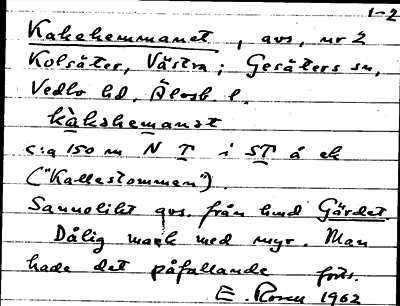 1-2
Kakehemmanet, avs, nr 2
Kolsäter, Västra; Gesäters sn,
Vedbo hd, Älvsb. l.
kàkshemanət
c:a 150 m N T i ST å ek
("Kallestommen").
Sannolikt avs. från hmd Gärdet
Dålig mark med myr. Man
hade det påfallande forts.
E. Rosen 1962